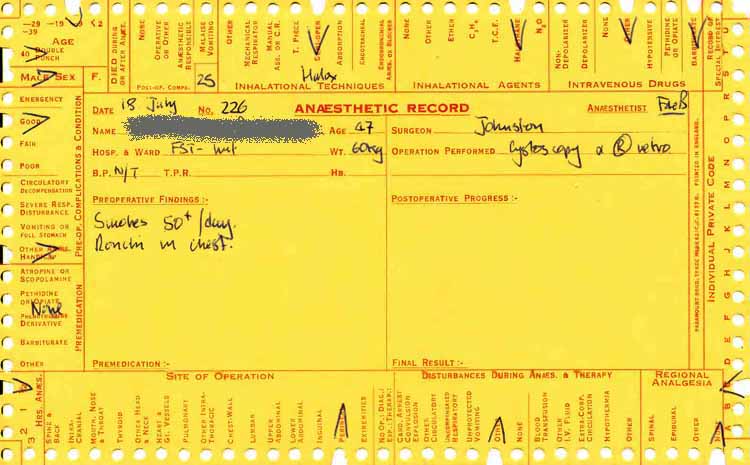 -29 -19 -9 2
-39
AGE
40 DOUBLE PUNCH
MALE SEX F.
DIED DURING OR AFTER ANÆS.
NONE
OPERATIVE OR OTHER
ANÆSTHETIC RESPONSIBLE
MALAISE VOMITING
OTHER
POST-OP. COMPS. 25
OTHER
MECHANICAL RESPIRATOR
T. PIECE
ABSORPTION
ENDOTRACHEAL
Halox
INHALATIONAL TECHNIQUES
OTHER
ETHER
C₃H₆
T.C.E.
N₂O
INHALATIONAL AGENTS
NONE
NON-DEPOLARIZER
DEPOLARIZER
NONE
OTHER
HYPOTENSIVE
PETHIDINE OR OPIATE
BARBITURATE
INTRAVENOUS DRUGS
RECORD OF SPECIAL INTEREST
DATE 18 July No. 226
ANÆSTHETIC RECORD
ANÆSTHETIST
NAME AGE 47
SURGEON Johnston
HOSP. & WARD WT. 60kg
OPERATION PERFORMED Cystoscopy & Ⓡ retro
B.P. N/T T.P.R. HB.
PREOPERATIVE FINDINGS :-
POSTOPERATIVE PROGRESS :-
Smokes 50+ /day.
Ronchi in chest.
PREMEDICATION :-
FINAL RESULT :-
EMERGENCY
GOOD
FAIR
POOR
CIRCULATORY DECOMPENSATION
SEVERE RESP. DISTURBANCE
VOMITING OR FULL STOMACH
OTHER ANÆS. HANDICAP
PRE-OP. COMPLICATIONS & CONDITION
ATROPINE OR SCOPOLAMINE
PETHIDINE OR OPIATE
None
DERIVATIVE
BARBITURATE
OTHER
PREMEDICATION
INDIVIDUAL PRIVATE CODE
PRINTED IN ENGLAND.
HRS. ANÆS.
SITE OF OPERATION
SPINE & BACK
INTRA-CRANIAL
MOUTH, NOSE & THROAT
THYROID
OTHER HEAD & NECK
HEART & GT. VESSELS
PULMONARY
OTHER INTRA-THORACIC
CHEST-WALL
LUMBAR
UPPER ABDOMINAL
LOWER ABDOMINAL
INGUINAL
EXTREMITIES
DISTURBANCES DURING ANÆS. & THERAPY
CARD. ARREST
CONVULSION
EXPLOSION
OTHER CIRCULATORY
UNDEPRESSED RESPIRATORY
UNPROTECTED VOMITING
OTHER
NONE
BLOOD TRANSFUSION
OTHER I.V. FLUID
EXTRA-CORP. CIRCULATION
HYPOTHERMIA
OTHER
REGIONAL ANALGESIA
SPINAL
EPIDURAL
OTHER